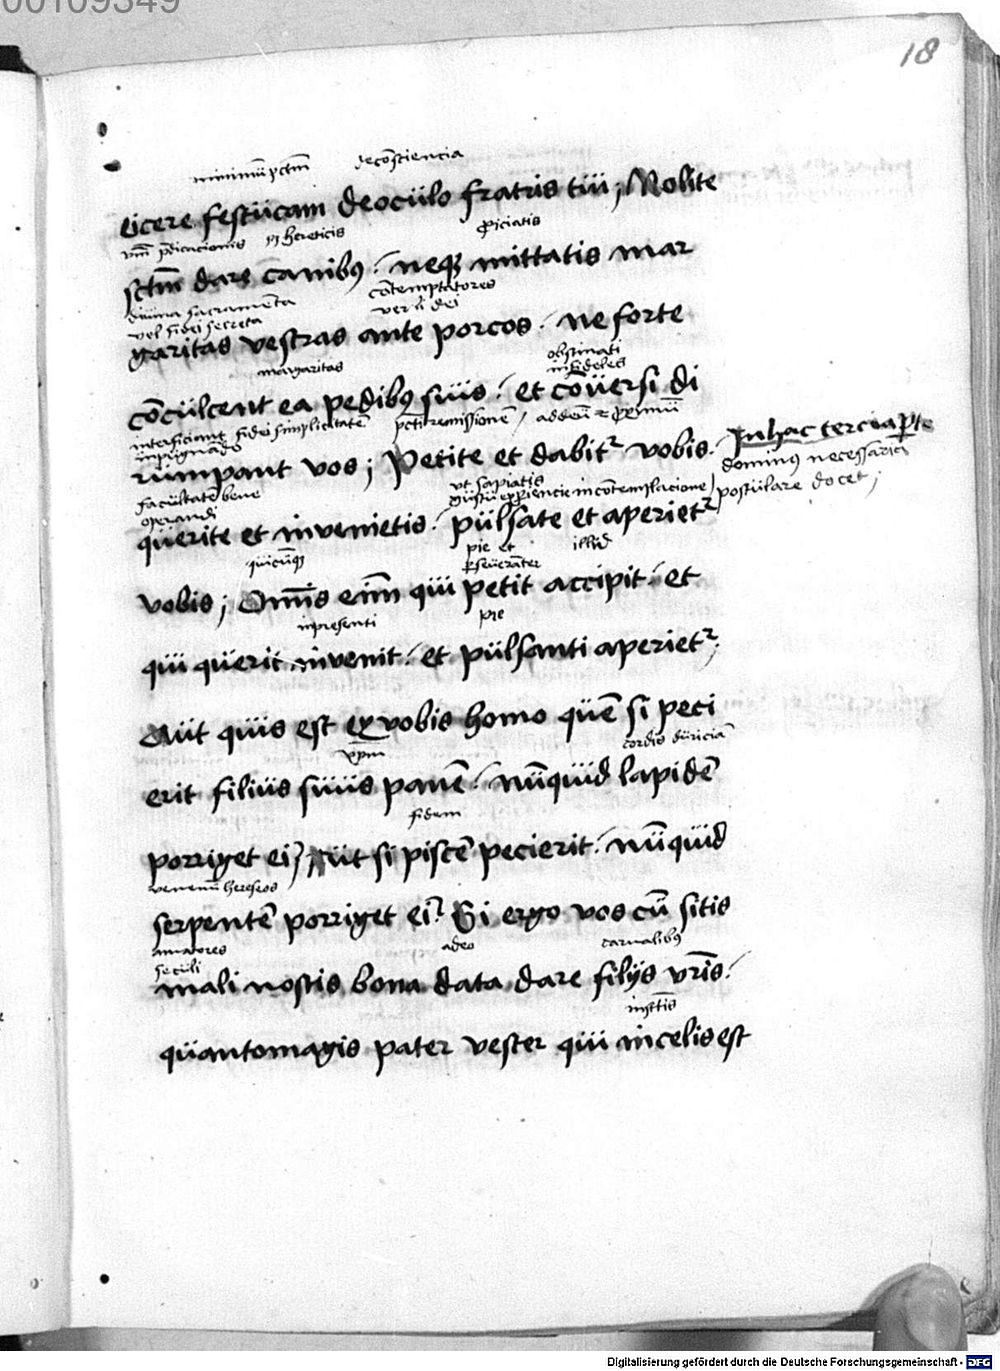 00109349
18
minimū pctm̄ de cōsciencia
eicere festucam de oculo fratris tui ; Nolite
vm̄ pdicacionis hereticis piciatis
sctm̄ dare canibꝰ . neqꝫ mittatis mar
diuina sacramenta cōtemptatores
vel fidei secreta dei
garitas vestras ante porcos . ne forte
margaritas obstinati
infideles
cōculcent ea pedibꝰ suis . et cōuersi di
interficiant fidei simplicitatē pcti remissionē
impugnādo
rumpant vos ; Petite et dabitᷣ vobis . In hac tercia pte
dominꝰ necessaria
postulare docet ;
facultatē bene vt sapiatis
operandi gustū experiencie in cōtemplacione
querite et inuenietis . pulsate et aperietᷣ
quicūqꝫ pie et illud
pseuerāter
vobis ; Omīs eim̄ qui petit accipit . et
in presenti pie
qui querit inuenit . et pulsanti aperietᷣ ;
Aut quis est ex vobis homo quē si peci
xpm̄ cordis duriciā
erit filius suus panē . nūquid lapidē
fidem
porriget ei ? Aut si piscē pecierit . nūquid
venenū hereseos
serpentē porriget ei ? Si ergo vos cū sitis
amatores a deo carnalibꝰ
seculi
mali nostis bona data dare filijs vrīs .
iustis
quantomagis pater vester qui in celis est
Digitalisierung gefördert durch die Deutsche Forschungsgemeinschaft - DFG